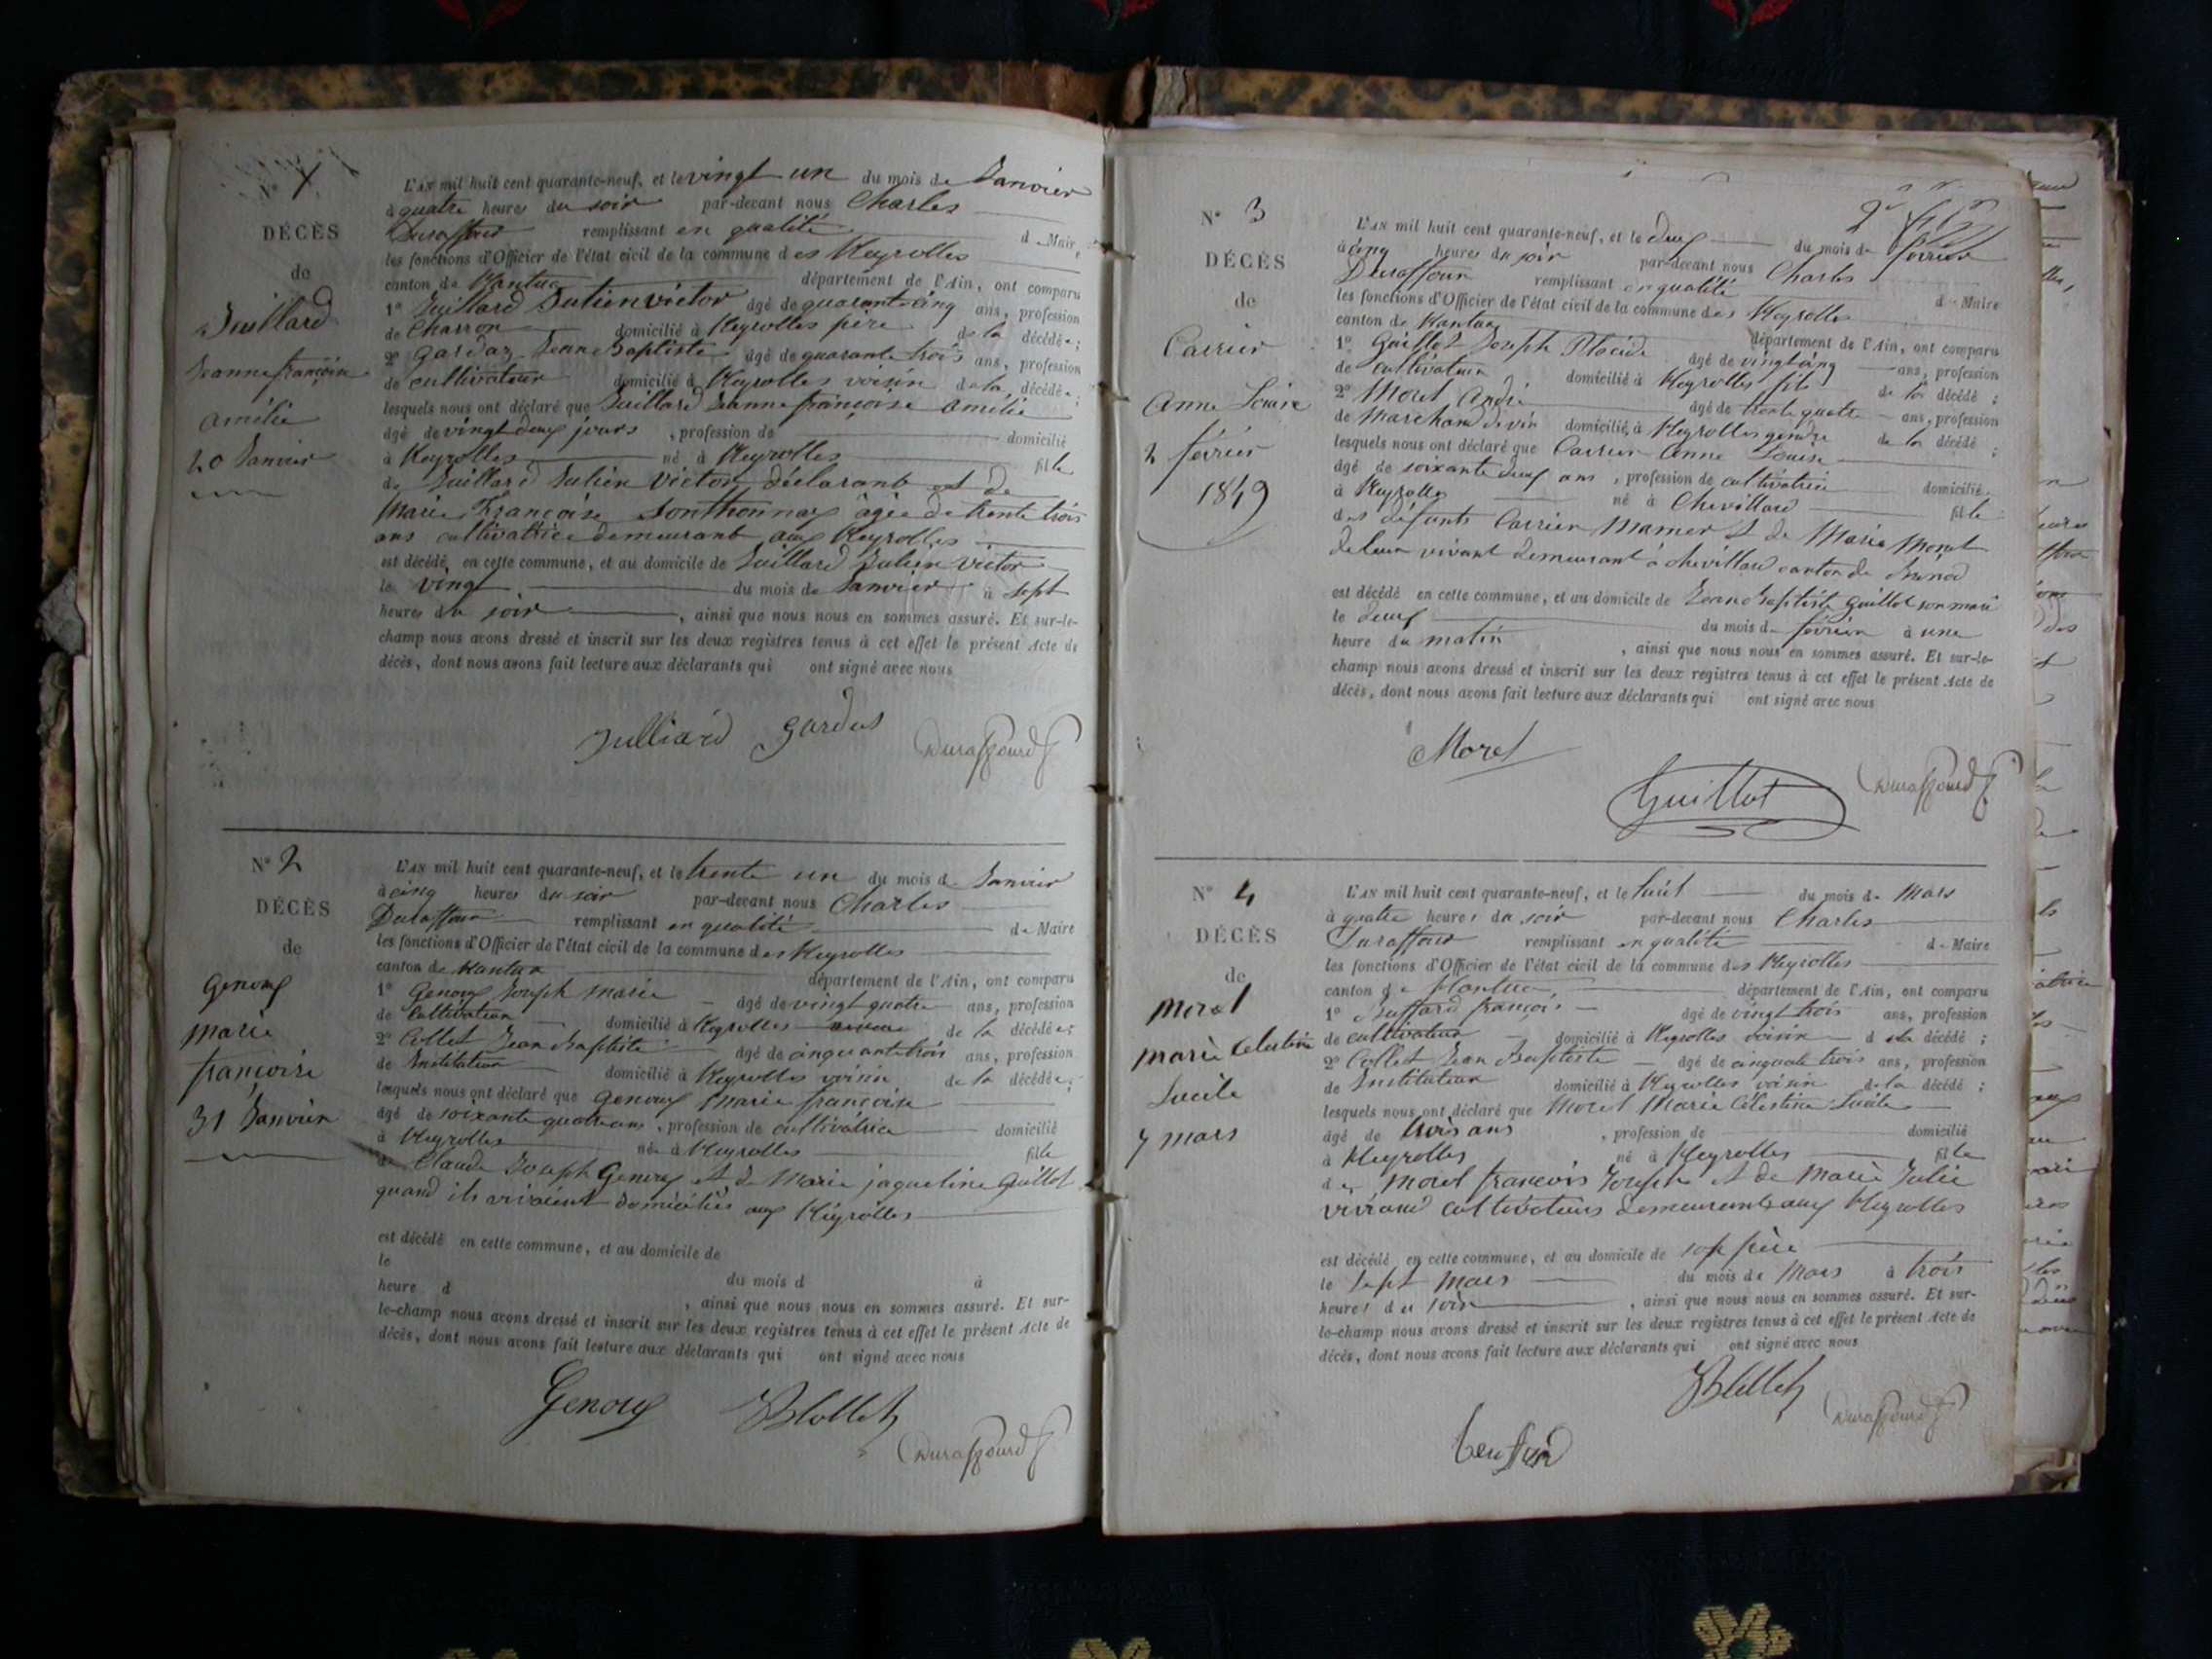 N° 1
DÉCÈS
de
Juillard
Jeanne françoise
amélie
20 Janvier
L'AN mil huit cent quarante-neuf, et le vingt un du mois de Janvier
à quatre heures du soir par-devant nous Charles
Duraffour remplissant en qualité de Maire
les fonctions d'Officier de l'état civil de la commune des Neyrolles
canton de Nantua département de l'Ain, ont comparu
1° Juillard Julien victor âgé de quarante cinq ans, profession
de Charron domicilié à Neyrolles père de la décédée;
2° gardaz Jenne Baptiste âgé de quarante trois ans, profession
de cultivateur domicilié à Neyrolles voisin de la décédée;
lesquels nous ont déclaré que Juillard Jeanne françoise amélie
âgé de vingt deux jours, profession de domicilié
à Neyrolles né à Neyrolles fille
de Juillard Julien Victor déclarant et de
Marie Françoise Sonthonnax âgée de trente trois
ans cultivatrice demeurant aux Neyrolles
est décédé en cette commune, et au domicile de Juillard Julien victor
le vingt du mois de Janvier à sept
heures du soir, ainsi que nous nous en sommes assuré. Et sur-le-
champ nous avons dressé et inscrit sur les deux registres tenus à cet effet le présent Acte de
décès, dont nous avons fait lecture aux déclarants qui ont signé avec nous
Julliard gardas Duraffourd
N° 2
DÉCÈS
de
Genoux
Marie
françoise
31 Janvier
L'AN mil huit cent quarante-neuf, et le trente un du mois de Janvier
à cinq heures du soir par-devant nous Charles
Duraffour remplissant en qualité de Maire
les fonctions d'Officier de l'état civil de la commune des Neyrolles
canton de Nantua département de l'Ain, ont comparu
1° Genoux Joseph Marie âgé de vingt quatre ans, profession
de Cultivateur domicilié à Neyrolles de la décédée;
2° Collet Jean Baptiste âgé de cinquante trois ans, profession
de Instituteur domicilié à Neyrolles voisin de la décédée;
lesquels nous ont déclaré que Genoux Marie françoise
âgé de soixante quatre ans, profession de cultivatrice domicilié
à Neyrolles né à Neyrolles fille
de Claude Joseph Genoux et de Marie jaqueline Guillot
quand ils vivaient domiciliés aux Neyrolles
est décédé en cette commune, et au domicile de
le du mois d à
heure d, ainsi que nous nous en sommes assuré. Et sur-
le-champ nous avons dressé et inscrit sur les deux registres tenus à cet effet le présent Acte de
décès, dont nous avons fait lecture aux déclarants qui ont signé avec nous
Genoux JB Collet
Duraffourd
N° 3
DÉCÈS
de
Carrier
Anne Louise
2 février
1849
L'AN mil huit cent quarante-neuf, et le deux du mois de février
à cinq heures du soir par-devant nous Charles
Duraffour remplissant en qualité de Maire
les fonctions d'Officier de l'état civil de la commune des Neyrolles
canton de Nantua département de l'Ain, ont comparu
1° Guillot Joseph Placide âgé de vingt cinq ans, profession
de Cultivateur domicilié à Neyrolles fils de la décédé;
2° Morel André âgé de trente quatre ans, profession
de Marchand de vin domicilié à Neyrolles gendre de la décédé;
lesquels nous ont déclaré que Carrier Anne Louise
âgé de soixante deux ans, profession de cultivatrice domicilié
à Neyrolles né à Chevillard fille
des défunts Carrier Mamer et de Marie Morel
de leur vivant demeurant à chevillard canton de Brénod
est décédé en cette commune, et au domicile de Jean Baptiste Guillot son mari
le deux du mois de février à une
heure du matin, ainsi que nous nous en sommes assuré. Et sur-le-
champ nous avons dressé et inscrit sur les deux registres tenus à cet effet le présent Acte de
décès, dont nous avons fait lecture aux déclarants qui ont signé avec nous
Morel
Guillot Duraffourd
N° 4
DÉCÈS
de
Morel
Marie Celestine
Lucile
7 mars
L'AN mil huit cent quarante-neuf, et le huit du mois de Mars
à quatre heures du soir par-devant nous Charles
Duraffour remplissant en qualité de Maire
les fonctions d'Officier de l'état civil de la commune des Neyrolles
canton de Nantua département de l'Ain, ont comparu
1° Buffard françois âgé de vingt trois ans, profession
de cultivateur domicilié à Neyrolles voisin de la décédé;
2° Collet Jean Baptiste âgé de cinquate trois ans, profession
de Instituteur domicilié à Neyrolles voisin de la décédé;
lesquels nous ont déclaré que Morel Marie Célestine Lucile
âgé de trois ans, profession de domicilié
à Neyrolles né à Neyrolles fille
de Morel françois Joseph et de Marie Julie
vivrand cultivateurs demeurant aux Neyrolles
est décédé en cette commune, et au domicile de son père
le Sept mars du mois de Mars à trois
heures du soir, ainsi que nous nous en sommes assuré. Et sur-
le-champ nous avons dressé et inscrit sur les deux registres tenus à cet effet le présent Acte de
décès, dont nous avons fait lecture aux déclarants qui ont signé avec nous
JB Collet
Duraffourd